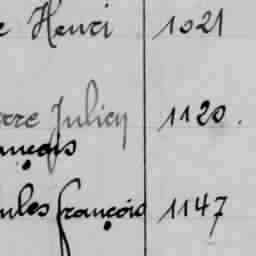 Henri 1021
erre Julien 1120.
ançois
ules françois 1147